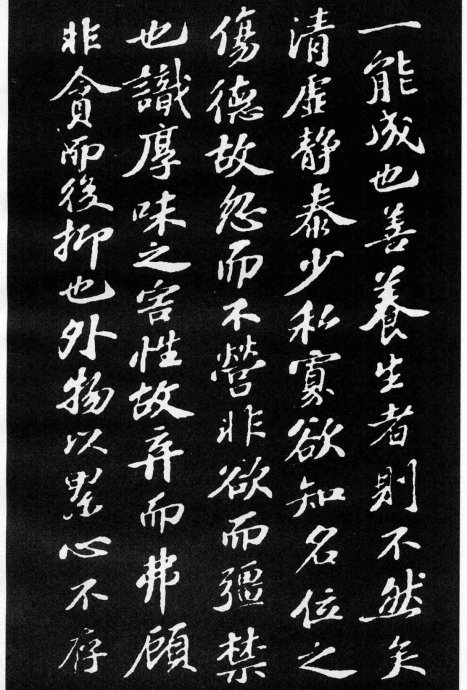 一能成也善養生者則不然矣
清虛静泰少私寡欲知名位之
傷德故忽而不營非欲而彊禁
也識厚味之害性故弃而弗顧
非貪而後抑也外物以累心不存